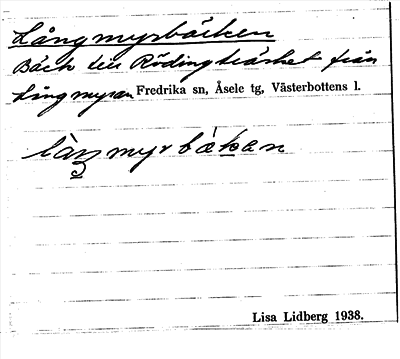 Långmyrbäcken
Bäck till Rödingträsket från
Långmyran Fredrika sn, Åsele tg, Västerbottens l.
Lisa Lidberg 1938.